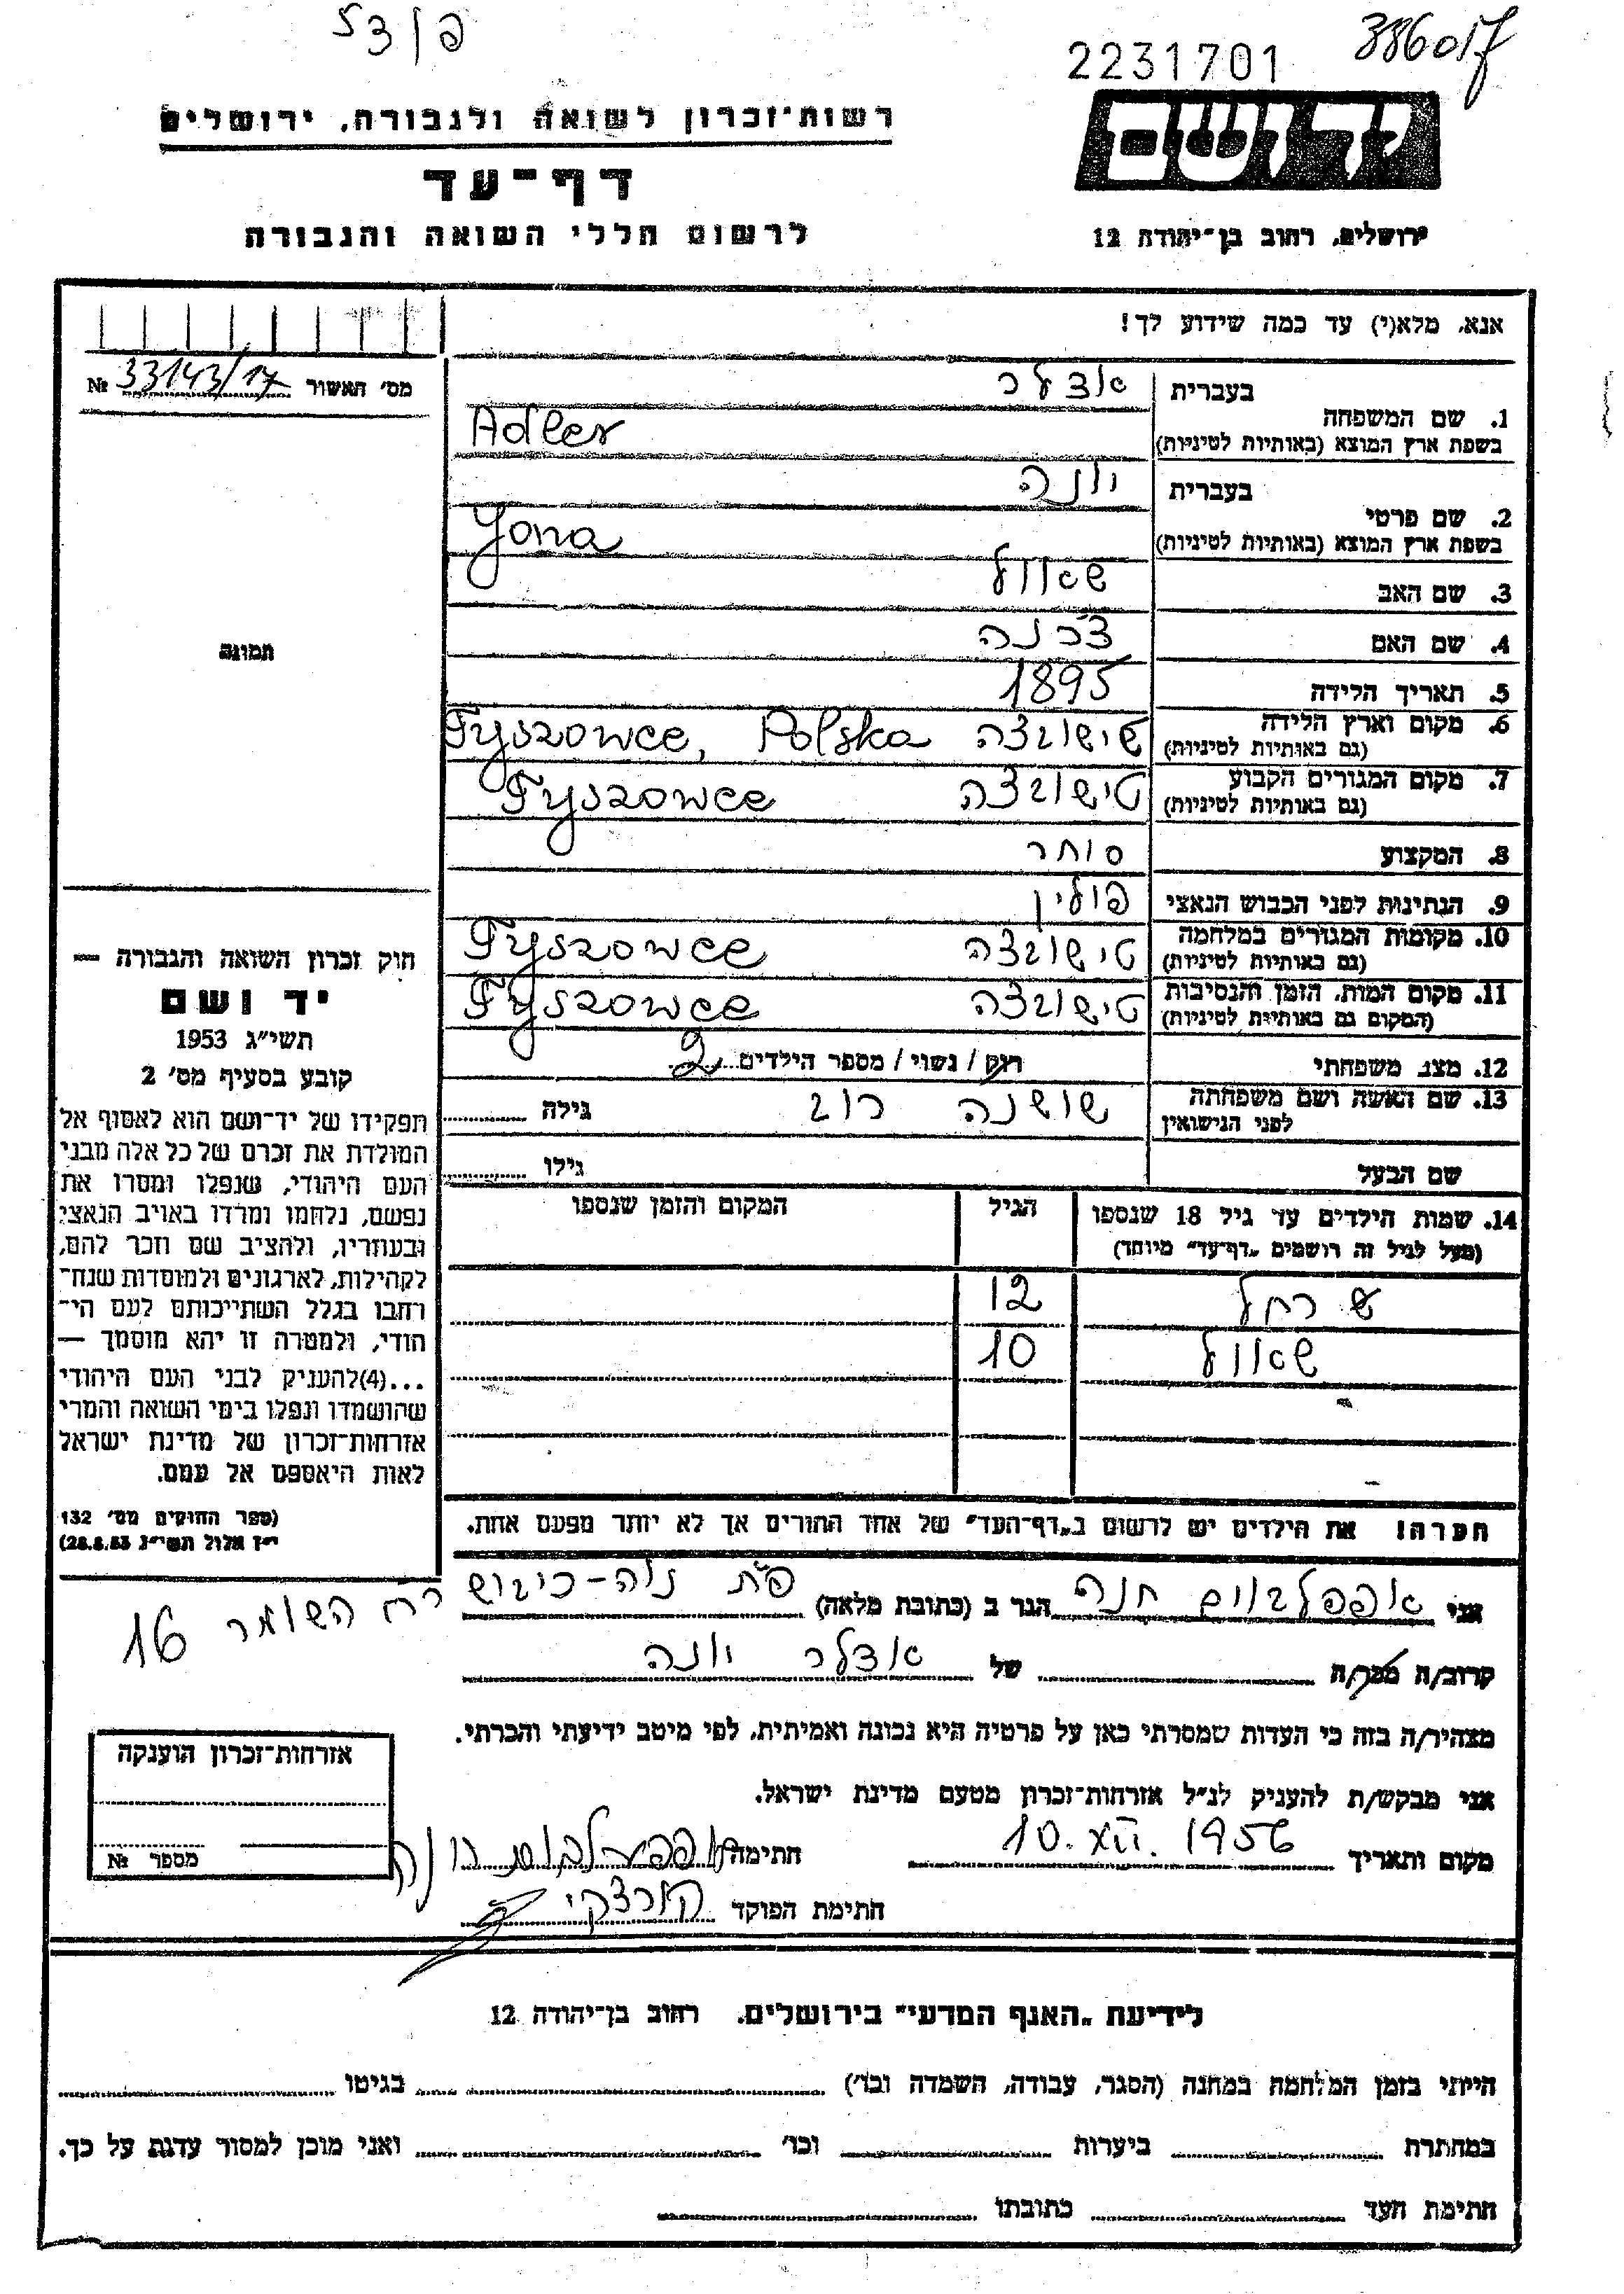 פ/53
386017
2231701
יד ושם
ירושלים, רחוב בן־יהודה 12
רשות־זכרון לשואה ולגבורה, ירושלים
דף־עד
לרשום חללי השואה והגבורה
אנא, מלא(י) עד כמה שידוע לך!
מס׳ האשור 33143/17 №
תמונה
חוק זכרון השואה והגבורה —
יד ושם
תשי״ג 1953
קובע בסעיף מס׳ 2
תפקידו של יד־ושם הוא לאסוף אל
המולדת את זכרם של כל אלה מבני
העם היהודי, שנפלו ומסרו את
נפשם, נלחמו ומרדו באויב הנאצי
ובעוזריו, ולהציב שם וזכר להם,
לקהילות, לארגונים ולמוסדות שנח־
רחבו בגלל השתייכותם לעם הי־
הודי, ולמטרה זו יהא מוסמך —
...(4)להעניק לבני העם היהודי
שהושמדו ונפלו בימי השואה והמרי
אזרחות־זכרון של מדינת ישראל
לאות היאספם אל עמם.
(ספר החוקים מס׳ 132
י״ז אלול תשי״ג 28.8.53)
1. שם המשפחה בעברית אדלר
בשפת ארץ המוצא (באותיות לטיניות) Adler
2. שם פרטי בעברית יונה
בשפת ארץ המוצא (באותיות לטיניות) Yona
3. שם האב שאול
4. שם האם
5. תאריך הלידה 1895
6. מקום וארץ הלידה (גם באותיות לטיניות) טישובצה Tyszowce, Polska
7. מקום המגורים הקבוע (גם באותיות לטיניות) טישובצה Tyszowce
8. המקצוע סוחר
9. הנתינות לפני הכבוש הנאצי פולין
10. מקומות המגורים במלחמה (גם באותיות לטיניות) טישובצה Tyszowce
11. מקום המות, הזמן והנסיבות (המקום גם באותיות לטיניות) טישובצה Tyszowce
12. מצב משפחתי רוק / נשוי / מספר הילדים 2
13. שם האשה ושם משפחתה לפני הנישואין שושנה רוב גילה
שם הבעל גילו
14. שמות הילדים עד גיל 18 שנספו הגיל המקום והזמן שנספו
(מעל לגיל זה רושמים „דף־עד״ מיוחד)
רחל 12
שאול 10
הערה! את הילדים יש לרשום ב„דף־העד״ של אחד ההורים אך לא יותר מפעם אחת.
אני אפפלבוים חנה הגר ב (כתובת מלאה) פ״ת נוה-כיבוש רח השומר 16
קרוב/ה מכר/ה של אדלר יונה
מצהיר/ה בזה כי העדות שמסרתי כאן על פרטיה היא נכונה ואמיתית, לפי מיטב ידיעתי והכרתי.
אני מבקש/ת להעניק לנ״ל אזרחות־זכרון מטעם מדינת ישראל.
מקום ותאריך 10. XII. 1956 חתימה
חתימת הפוקד
אזרחות־זכרון הוענקה
מספר №
לידיעת „האגף המדעי״ בירושלים. רחוב בן־יהודה 12
הייתי בזמן המלחמה במחנה (הסגר, עבודה, השמדה וכו׳) בגיטו
במחתרת ביערות וכו׳ ואני מוכן למסור עדות על כך.
חתימת העד כתובתו